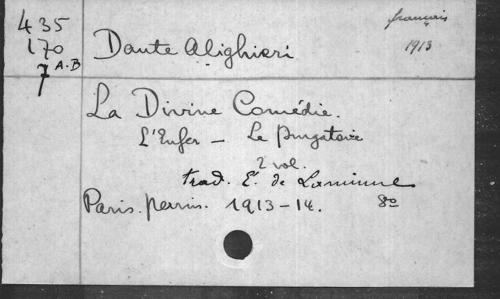 435
170
7 A.B
français
1913
Dante Alighieri
La Divine Comédie.
L'Enfer — Le Purgatoire
2 vol.
trad. E. de Laminne
Paris. Perrin. 1913-14. 8º